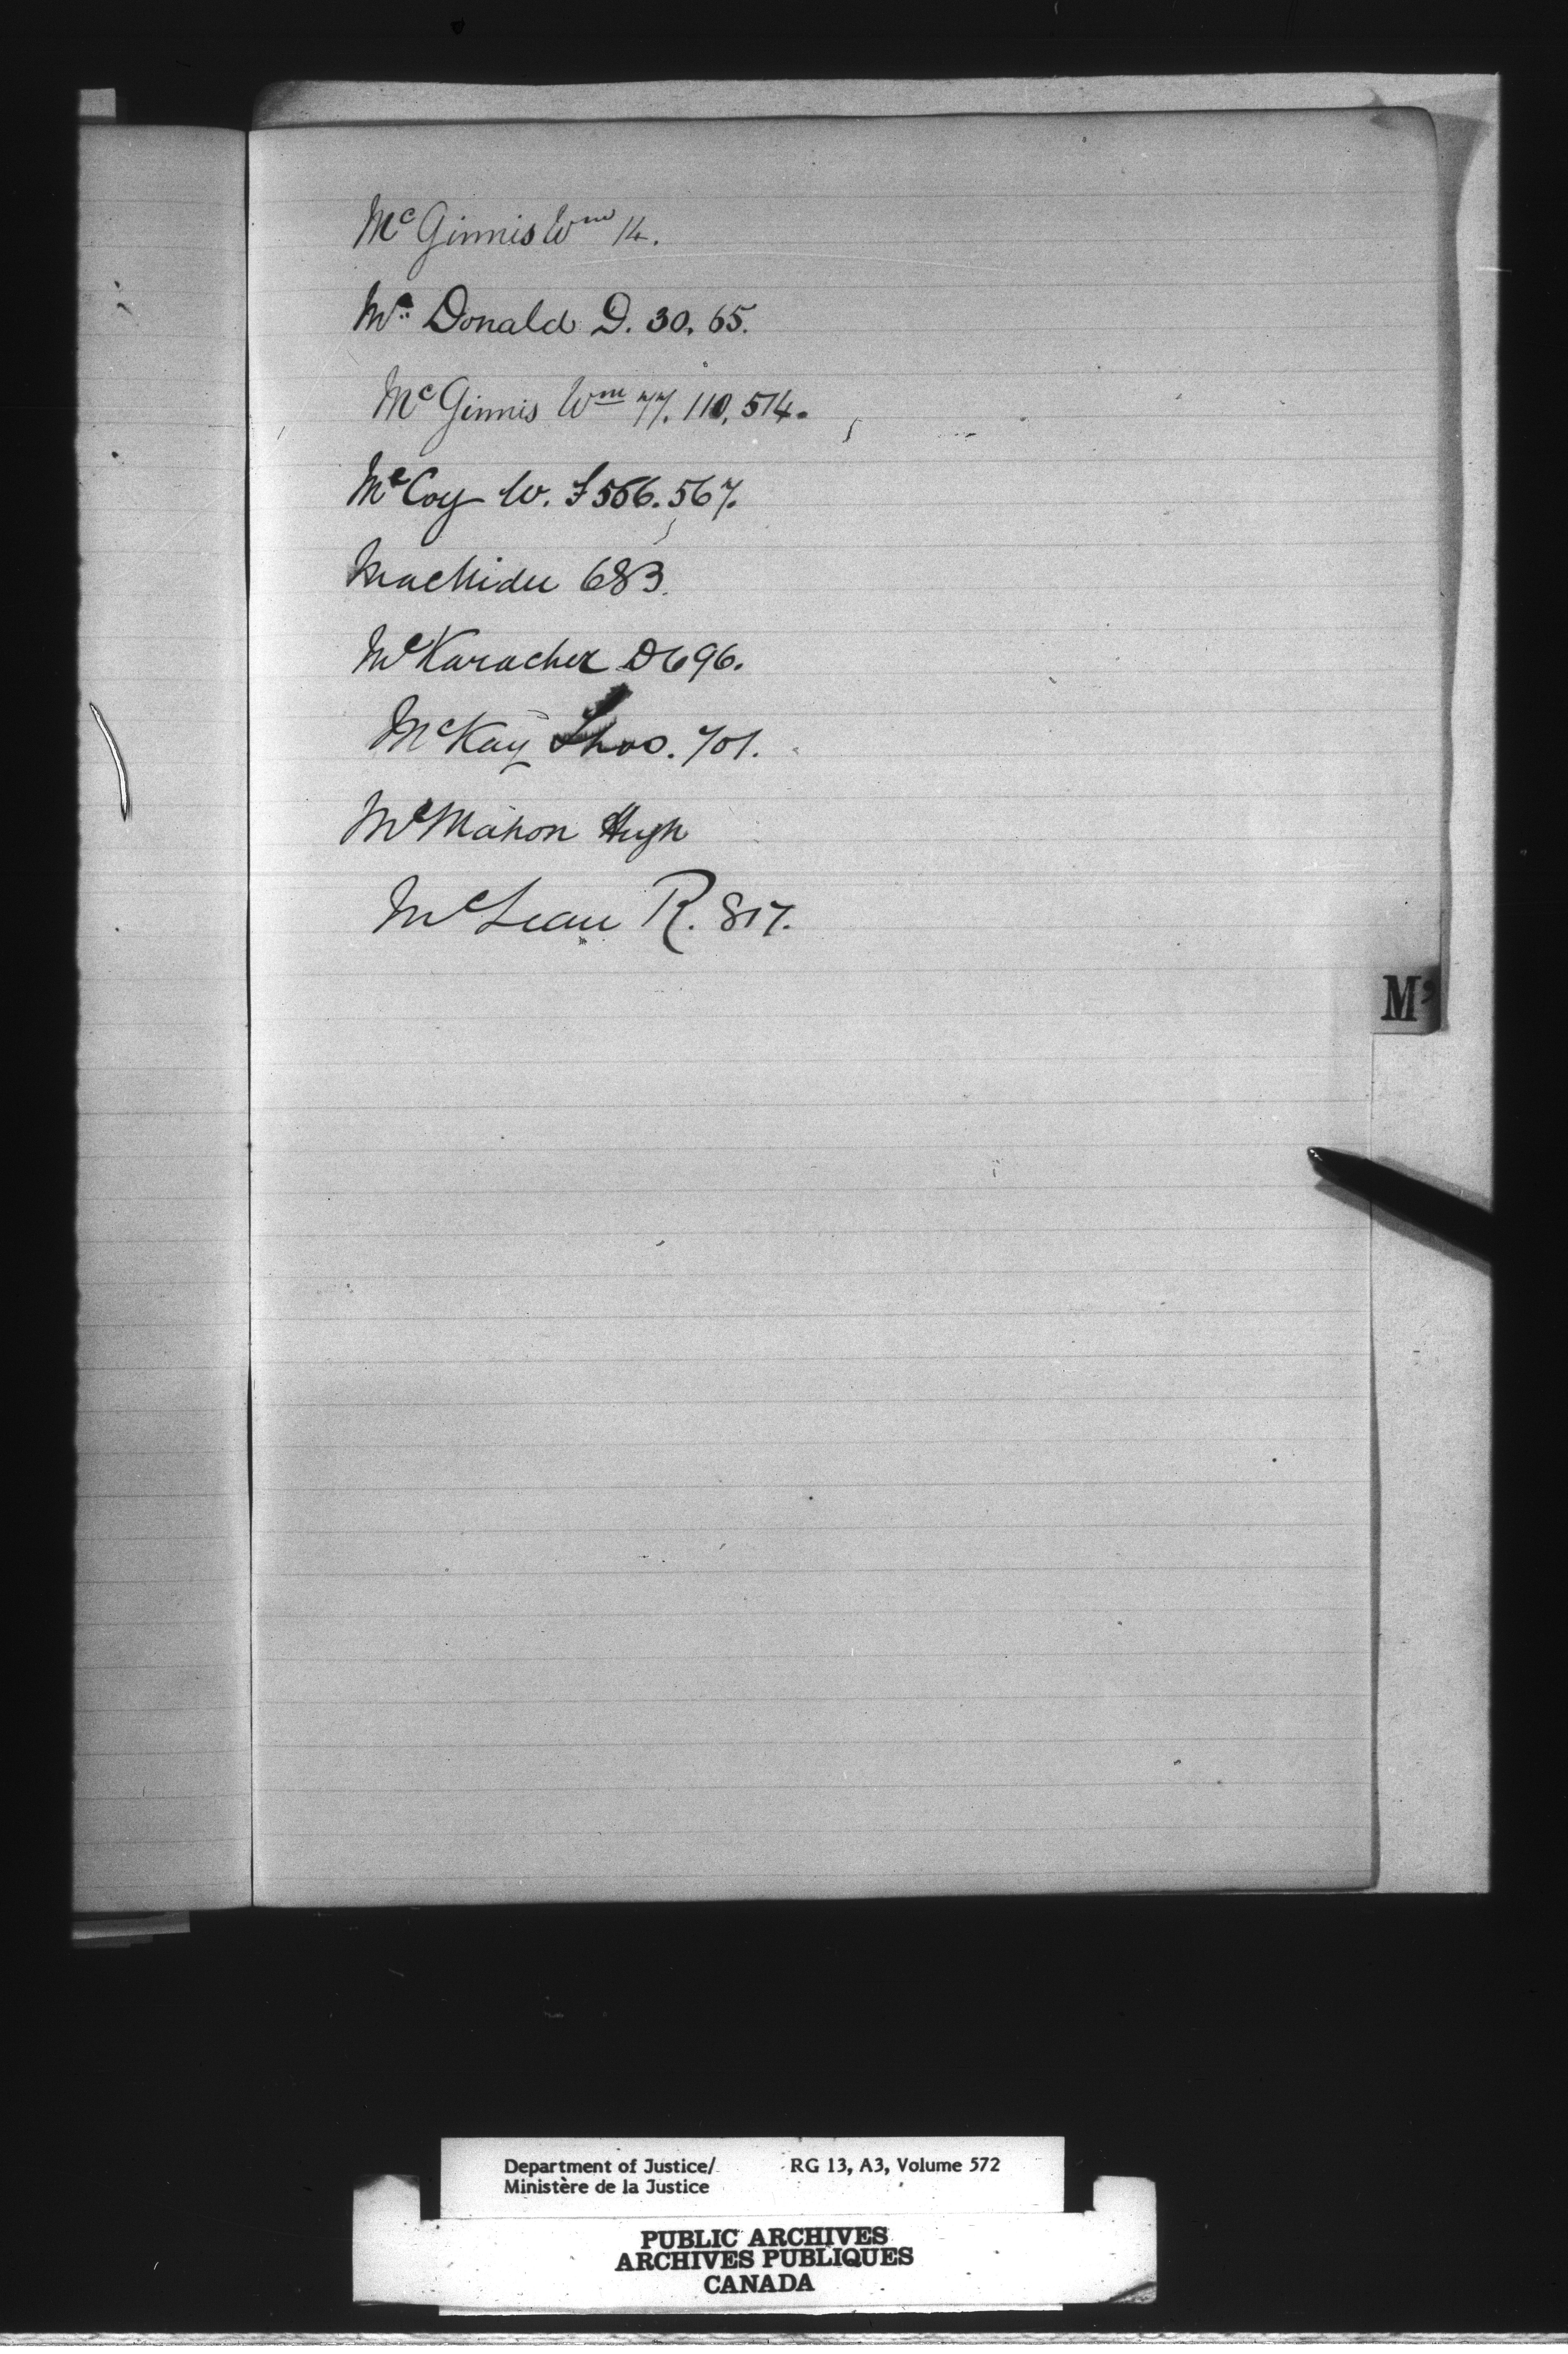 McGinnis Wm 14.
Mc Donald D. 30. 65.
McGinnis Wm 77. 110, 514.
McCoy W. F 566. 567.
683.
McKaracher D 696.
McKay Thos. 701.
McMahon Hugh
McLean R. 817.
Mc
Department of Justice/ RG 13, A3, Volume 572
Ministère de la Justice
PUBLIC ARCHIVES
ARCHIVES PUBLIQUES
CANADA